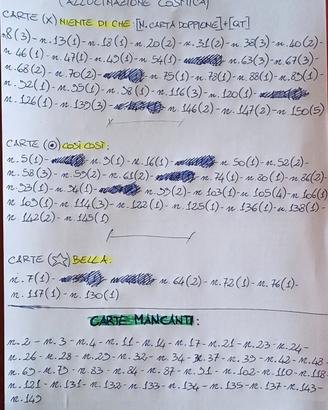 (ALLUCINAZIONE COSMICA)
CARTE (X) NIENTE DI CHE: [N. CARTA DOPPIONE]+[QT]
n.8(3)- n.13(1)- n.18(1)- n.20(2)- n.31(2)- n.38(3)- n.40(2)-
n.46(1)- n.47(1)- n.49(1)- n.54(1)- n.63(3)- n.67(3)-
n.68(2)- n.70(2)- n.75(1)- n.78(1)- n.88(1)- n.89(1)-
n.92(1)- n.95(1)- n.98(1)- n.116(3)- n.120(1)-
n.126(1)- n.139(3)- n.146(2)- n.147(2)- n.150(5)
CARTE (⊙) COSÌ COSÌ:
n.5(1)- n.9(1)- n.16(1)- n.50(1)- n.52(2)-
n.58(3)- n.59(2)- n.61(2)- n.74(1)- n.80(1)- n.86(2)-
n.93(1)- n.94(1)- n.99(2)- n.103(1)- n.105(4)- n.106(1)
n.109(1)- n.114(3)- n.122(1)- n.125(1)- n.136(1)- n.138(1)-
n.142(2)- n.145(1)
CARTE (☆) BELLA:
n.7(1)- n.64(2)- n.72(1)- n.76(1)-
n.117(1)- n.130(1)
CARTE MANCANTI:
n.2- n.3- n.4- n.11- n.14- n.17- n.21- n.23- n.24-
n.26- n.28- n.29- n.32- n.34- n.37- n.39- n.42- n.48-
n.69- n.79- n.83- n.84- n.87- n.91- n.102- n.110- n.118-
n.121- n.131- n.132- n.133- n.134- n.135- n.137- n.143-
n.149